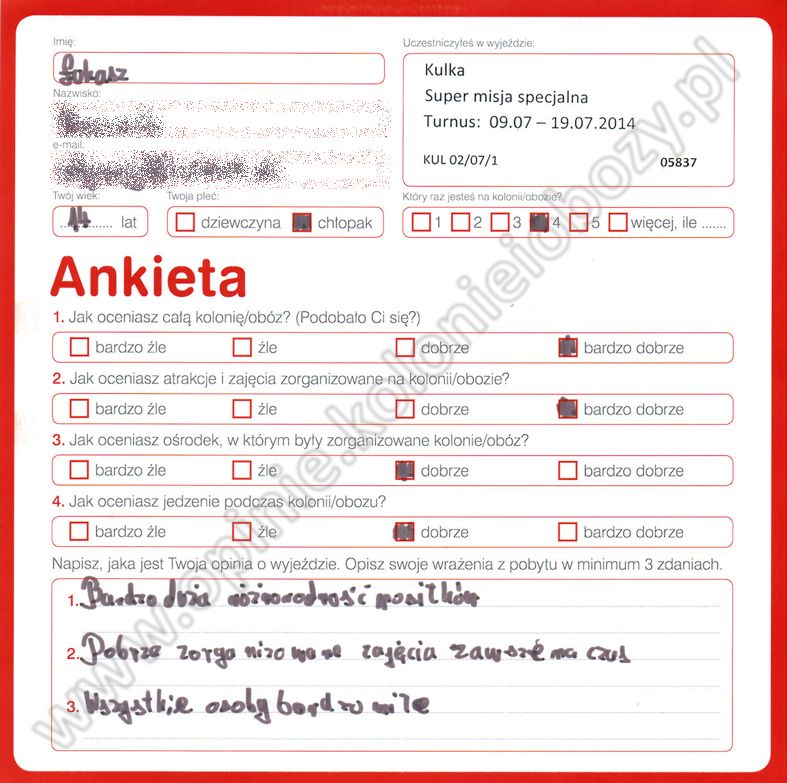 Imię:
Łukasz
Nazwisko:
e-mail:
Twój wiek:
14 lat
Twoja płeć:
dziewczyna chłopak
Uczestniczyłeś w wyjeździe:
Kulka
Super misja specjalna
Turnus: 09.07 – 19.07.2014
KUL 02/07/1 05837
Który raz jesteś na kolonii/obozie?
1 2 3 4 5 więcej, ile .......
Ankieta
1. Jak oceniasz całą kolonię/obóz? (Podobało Ci się?)
bardzo źle źle dobrze bardzo dobrze
2. Jak oceniasz atrakcje i zajęcia zorganizowane na kolonii/obozie?
bardzo źle źle dobrze bardzo dobrze
3. Jak oceniasz ośrodek, w którym były zorganizowane kolonie/obóz?
bardzo źle źle dobrze bardzo dobrze
4. Jak oceniasz jedzenie podczas kolonii/obozu?
bardzo źle źle dobrze bardzo dobrze
Napisz, jaka jest Twoja opinia o wyjeździe. Opisz swoje wrażenia z pobytu w minimum 3 zdaniach.
1. Bardzo duża różnorodność posiłków
2. Dobrze zorganizowane zajęcia zawsze na czas
3. Wszystkie osoby bardzo miłe
www.opinie.kolonieiobozy.pl